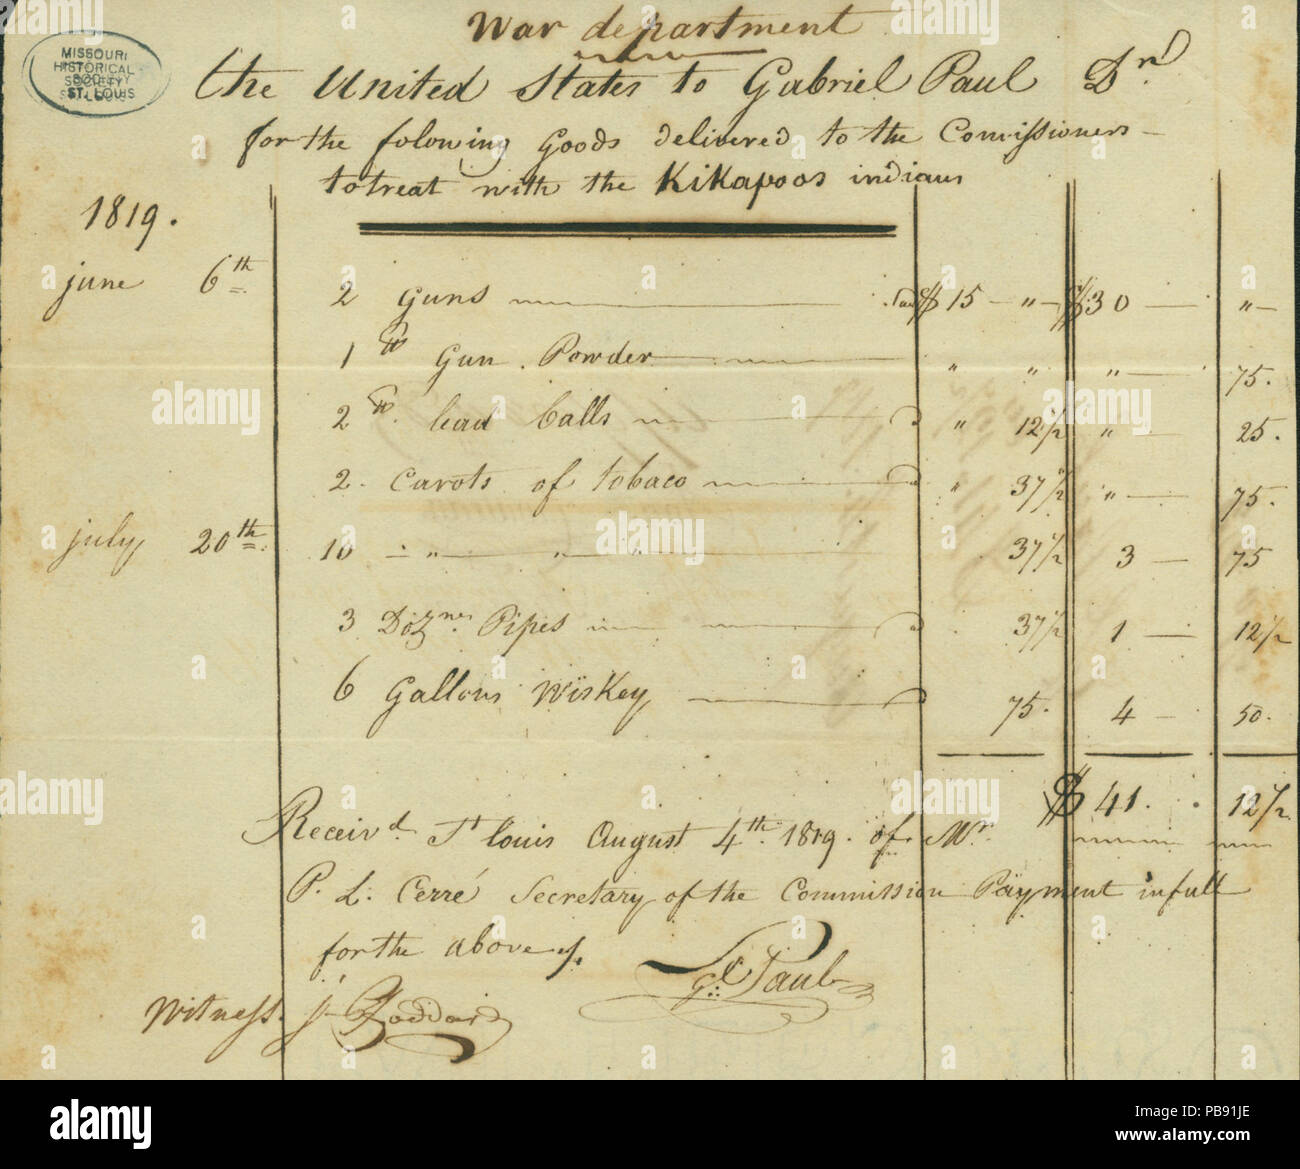 War department
MISSOURI
HISTORICAL
SOCIETY
ST. LOUIS
the United States to Gabriel Paul Dr
for the folowing Goods delivered to the Comissioners
to treat with the Kikapoos indians
1819.
june 6th 2 Guns $15 - " - $30 - " -
1 lb Gun Powder " " " - 75.
2 lb. lead balls " 12 1/2 " - 25.
2. Carots of tobaco " 37 1/2 " - 75.
july 20th. 10 - " - " - 37 1/2 3 - 75
3 Dozne. Pipes 37 1/2 1 - 12 1/2
6 Gallons Wiskey 75. 4 - 50.
$41. 12 1/2
Receivd. St louis August 4th. 1819. of Mr.
P. L. Cerré Secretary of the Commission Payment in full
for the above
Gl. Paul
Witness. j Goddard
a alamy
alamy
Image ID: PB91JE
www.alamy.com